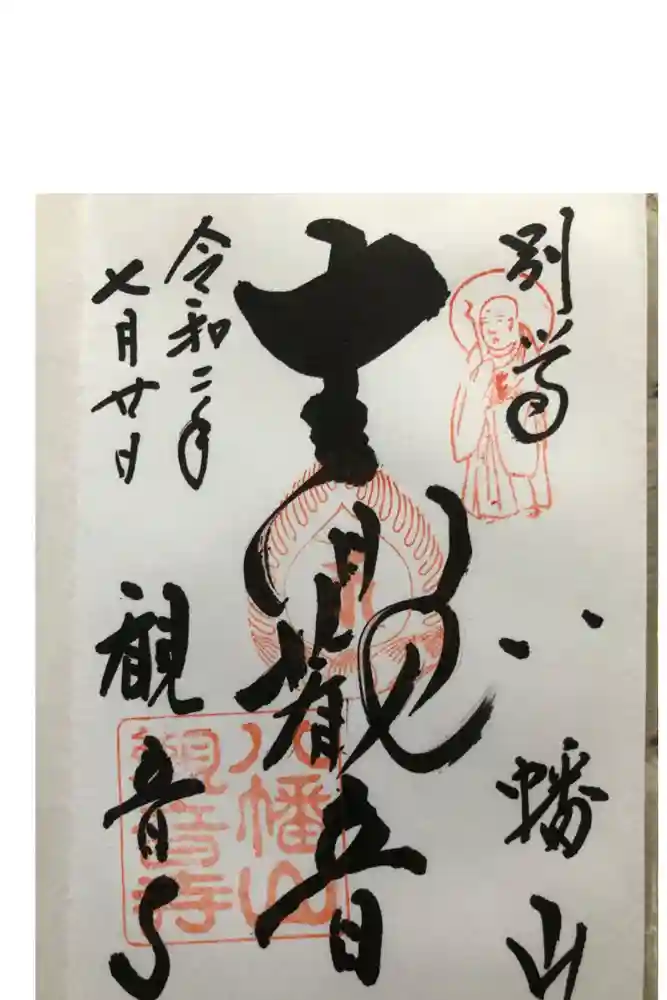 別尊 八幡山
観音
令和二年
七月廿日
観音寺
八幡山
観音寺